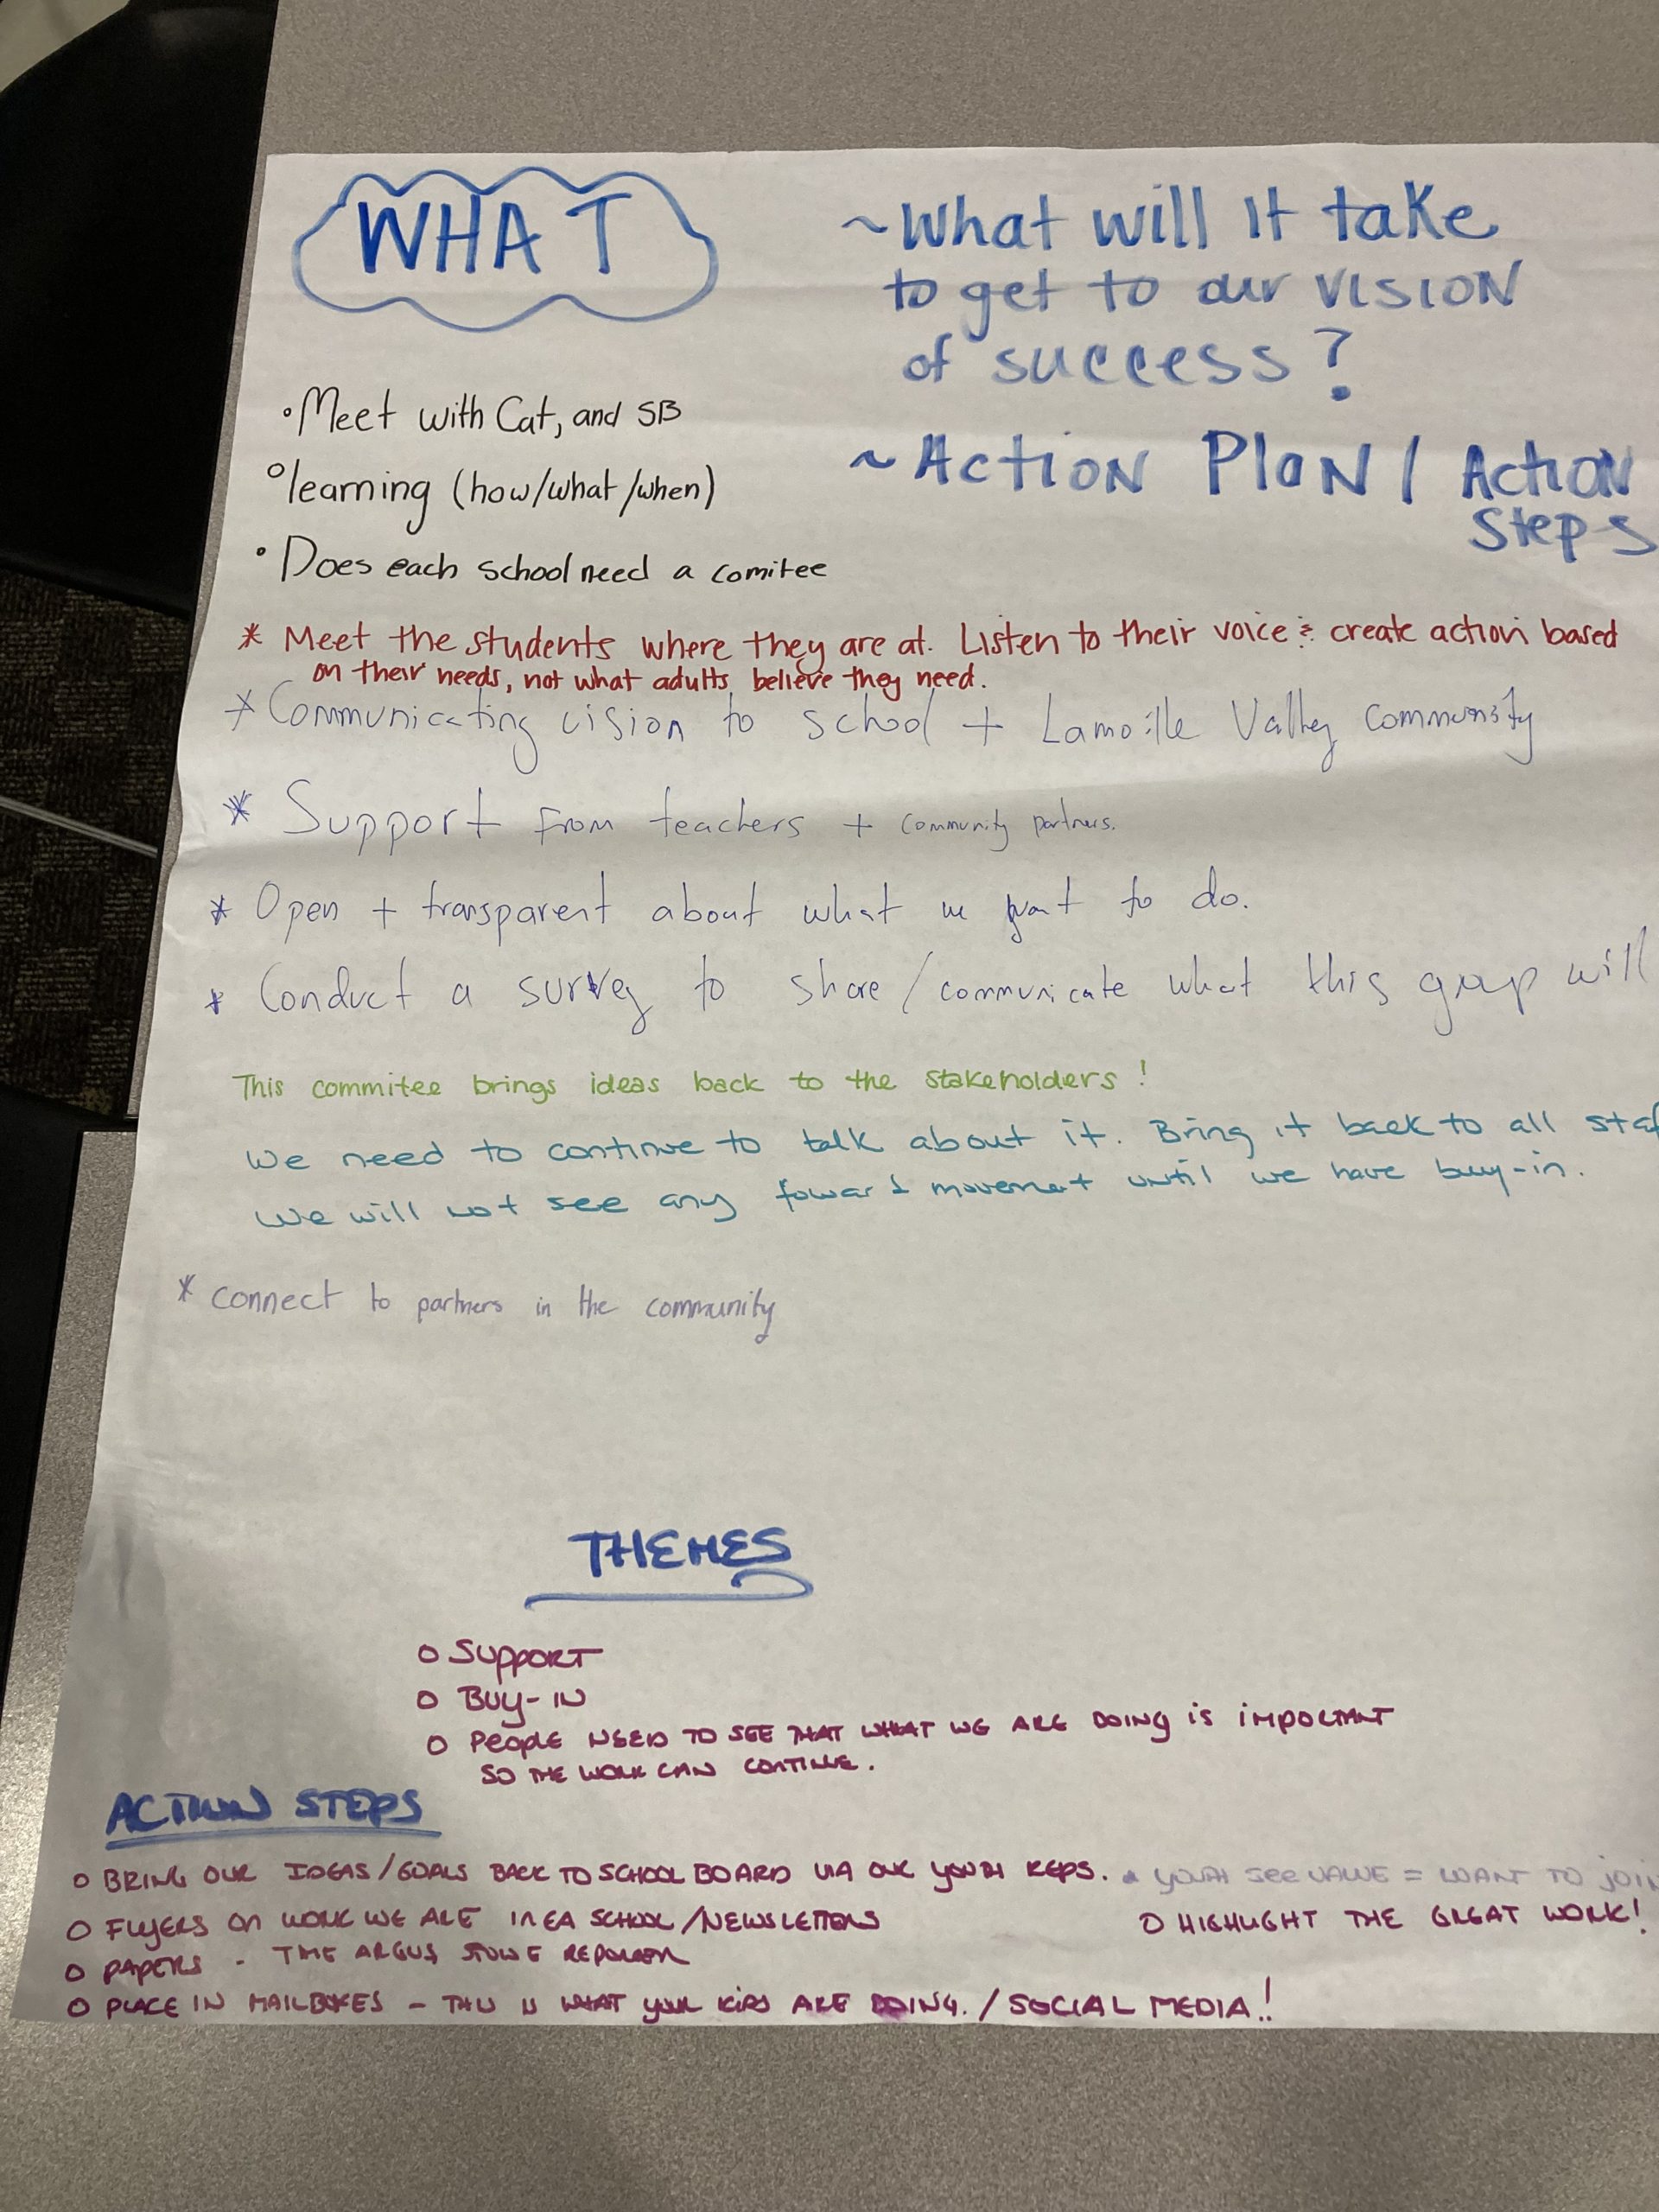 WHAT
~What will It take
to get to our VISION
of success?
~ACTION PLAN / ACTION
Steps
•Meet with Cat, and SB
°learning (how/what/when)
• Does each school need a comitee
* Meet the students where they are at. Listen to their voice & create action based
on their needs, not what adults believe they need.
* Communicating vision to school + Lamoille Valley Community
* Support from teachers + community partners.
* Open + transparent about what we want to do.
* Conduct a survey to share/communicate what this group will
This commitee brings ideas back to the stakeholders!
We need to continue to talk about it. Bring it back to all staf
We will not see any foward movement until we have buy-in.
* connect to partners in the community
THEMES
o SUPPORT
o BUY-IN
o PEOPLE NEED TO SEE THAT WHAT WE ARE DOING IS IMPORTANT
SO THE WORK CAN CONTINUE.
ACTION STEPS
o BRING OUR IDEAS/GOALS BACK TO SCHOOL BOARD VIA OUR YOUTH REPS. * YOUTH SEE VALUE = WANT TO JOIN
o FLYERS ON WORK WE ARE IN EA SCHOOL/NEWSLETTERS
o HIGHLIGHT THE GREAT WORK!
o PAPERS - THE ARGUS STOWE REPORTER
o PLACE IN MAILBOXES - THIS IS WHAT YOUR KIDS ARE DOING. / SOCIAL MEDIA!!